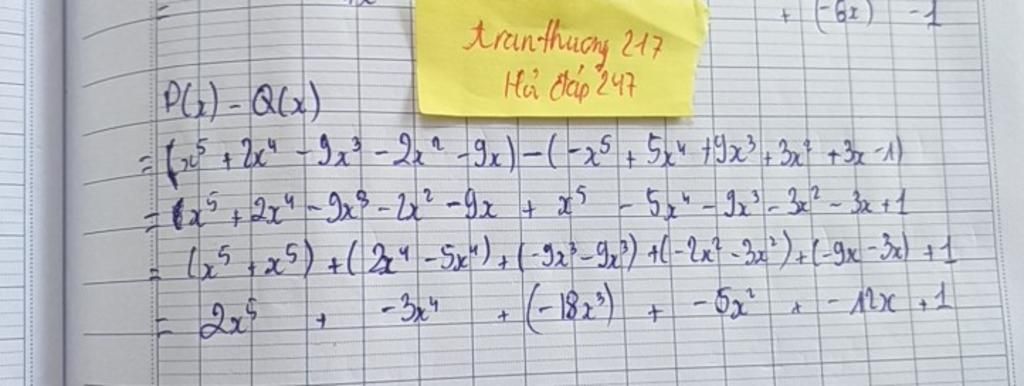 + (-6x) -1
tranthuong 217
Hỏi đáp 247
P(x) - Q(x)
= (x⁵ + 2x⁴ - 9x³ - 2x² - 9x) - (-x⁵ + 5x⁴ + 9x³ + 3x² + 3x - 1)
= x⁵ + 2x⁴ - 9x³ - 2x² - 9x + x⁵ - 5x⁴ - 9x³ - 3x² - 3x + 1
= (x⁵ + x⁵) + (2x⁴ - 5x⁴) + (-9x³ - 9x³) + (-2x² - 3x²) + (-9x - 3x) + 1
= 2x⁵ + -3x⁴ + (-18x³) + -5x² + -12x + 1